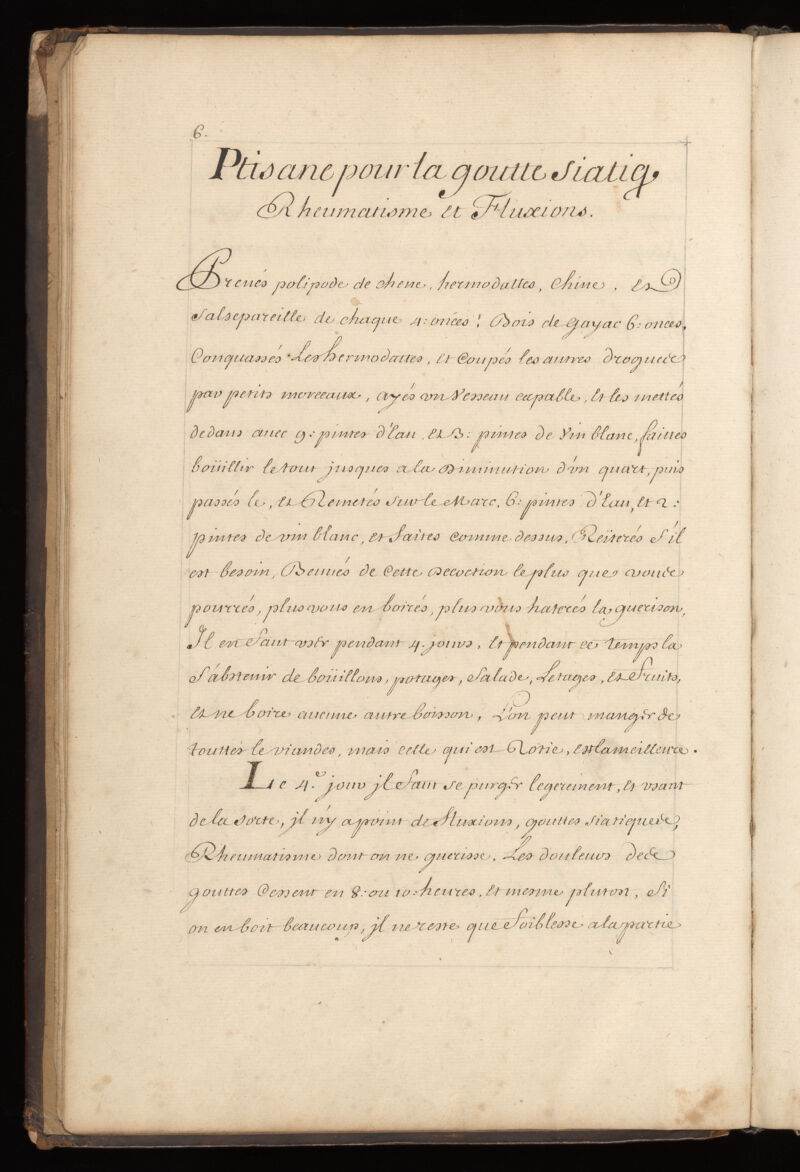 6.
Ptisane pour la goutte siatiq,
Rheumatisme et Fluxions.
Prenés polipode de chene, hermodattes, Chine, et
Salsepareille de chaque 4: onces; Bois de gayac 6: onces,
Conquassés Les hermodattes, et Coupés les autres drogues
par petits morceaux, ayés un Vesseau capable, et les mettés
dedans avec 9: pintes d'Eau, et 3: pintes de Vin blanc, faittes
boüillir le tout jusques a la diminution d'un quart, puis
passés le, et Remetés sur le Marc, 6: pintes d'Eau, et 2:
pintes de vin blanc, et faites comme dessus, Reïterés s'il
est besoin, Beuués de Cette decoction le plus que vous
pourrés, plus vous en boirés, plus vous haterés la guerison,
Il en faut user pendant 4. jours, et pendant ce temps la
s'abstenir de boüillons, potages, salade, Letages, et fruits,
et ne boire aucune autre boisson, L'on peut manger de
touttes le viandes, mais celle qui est Rotie, est la meilleure.
Le 4.e jour jl faut se purger legerement, et usant
de la sorte, jl n'y a point de fluxions, gouttes siatiques,
Rheumatisme dont on ne guerisse. Les douleurs des
gouttes Cessent en 8: ou 10: heures, et mesme plutost, si
on en boit beaucoup, jl ne reste que foiblesse a la partie